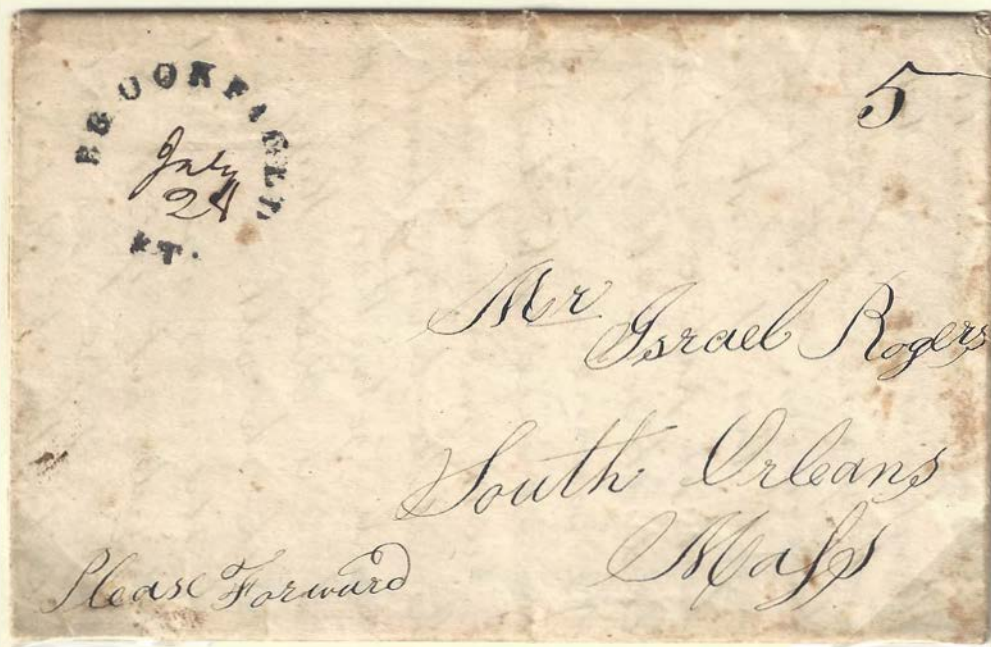 BROOKFIELD
July
24
VT.
5
Mr Israel Rogers
South Orleans
Maſs
Please Forward